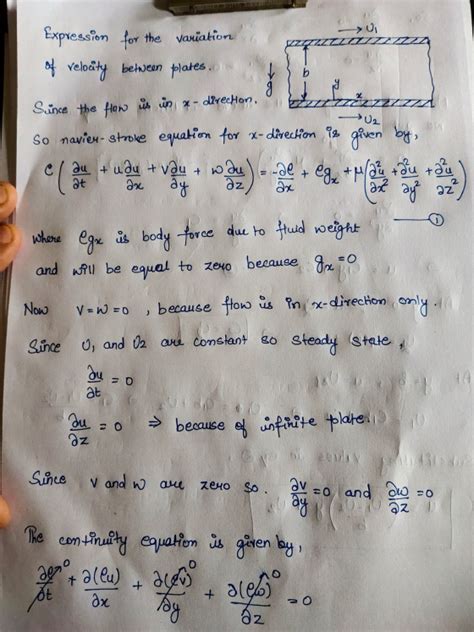 Expression for the variation → U1
of velocity between plates.
b
y
g
x
Since the flow is in x-direction. → U2
So navier-stroke equation for x-direction is given by,
ρ(∂u/∂t + u∂u/∂x + v∂u/∂y + w∂u/∂z) = -∂P/∂x + ρgx + μ(∂²u/∂x² + ∂²u/∂y² + ∂²u/∂z²)
— ①
where ρgx is body force due to fluid weight
and will be equal to zero because gx = 0
Now v = w = 0, because flow is in x-direction only.
Since U1 and U2 are constant so steady state,
∂u/∂t = 0
∂u/∂z = 0 ⇒ because of infinite plate.
Since v and w are zero so. ∂v/∂y = 0 and ∂w/∂z = 0
The continuity equation is given by,
∂ρ/∂t→0 + ∂(ρu)/∂x + ∂(ρv)/∂y→0 + ∂(ρw)/∂z→0 = 0